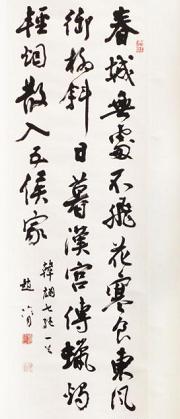 春城無處不飛花寒食東風
御柳斜日暮漢宮傳蠟燭
輕烟散入五侯家
韓翃七絕一首
趙冷月